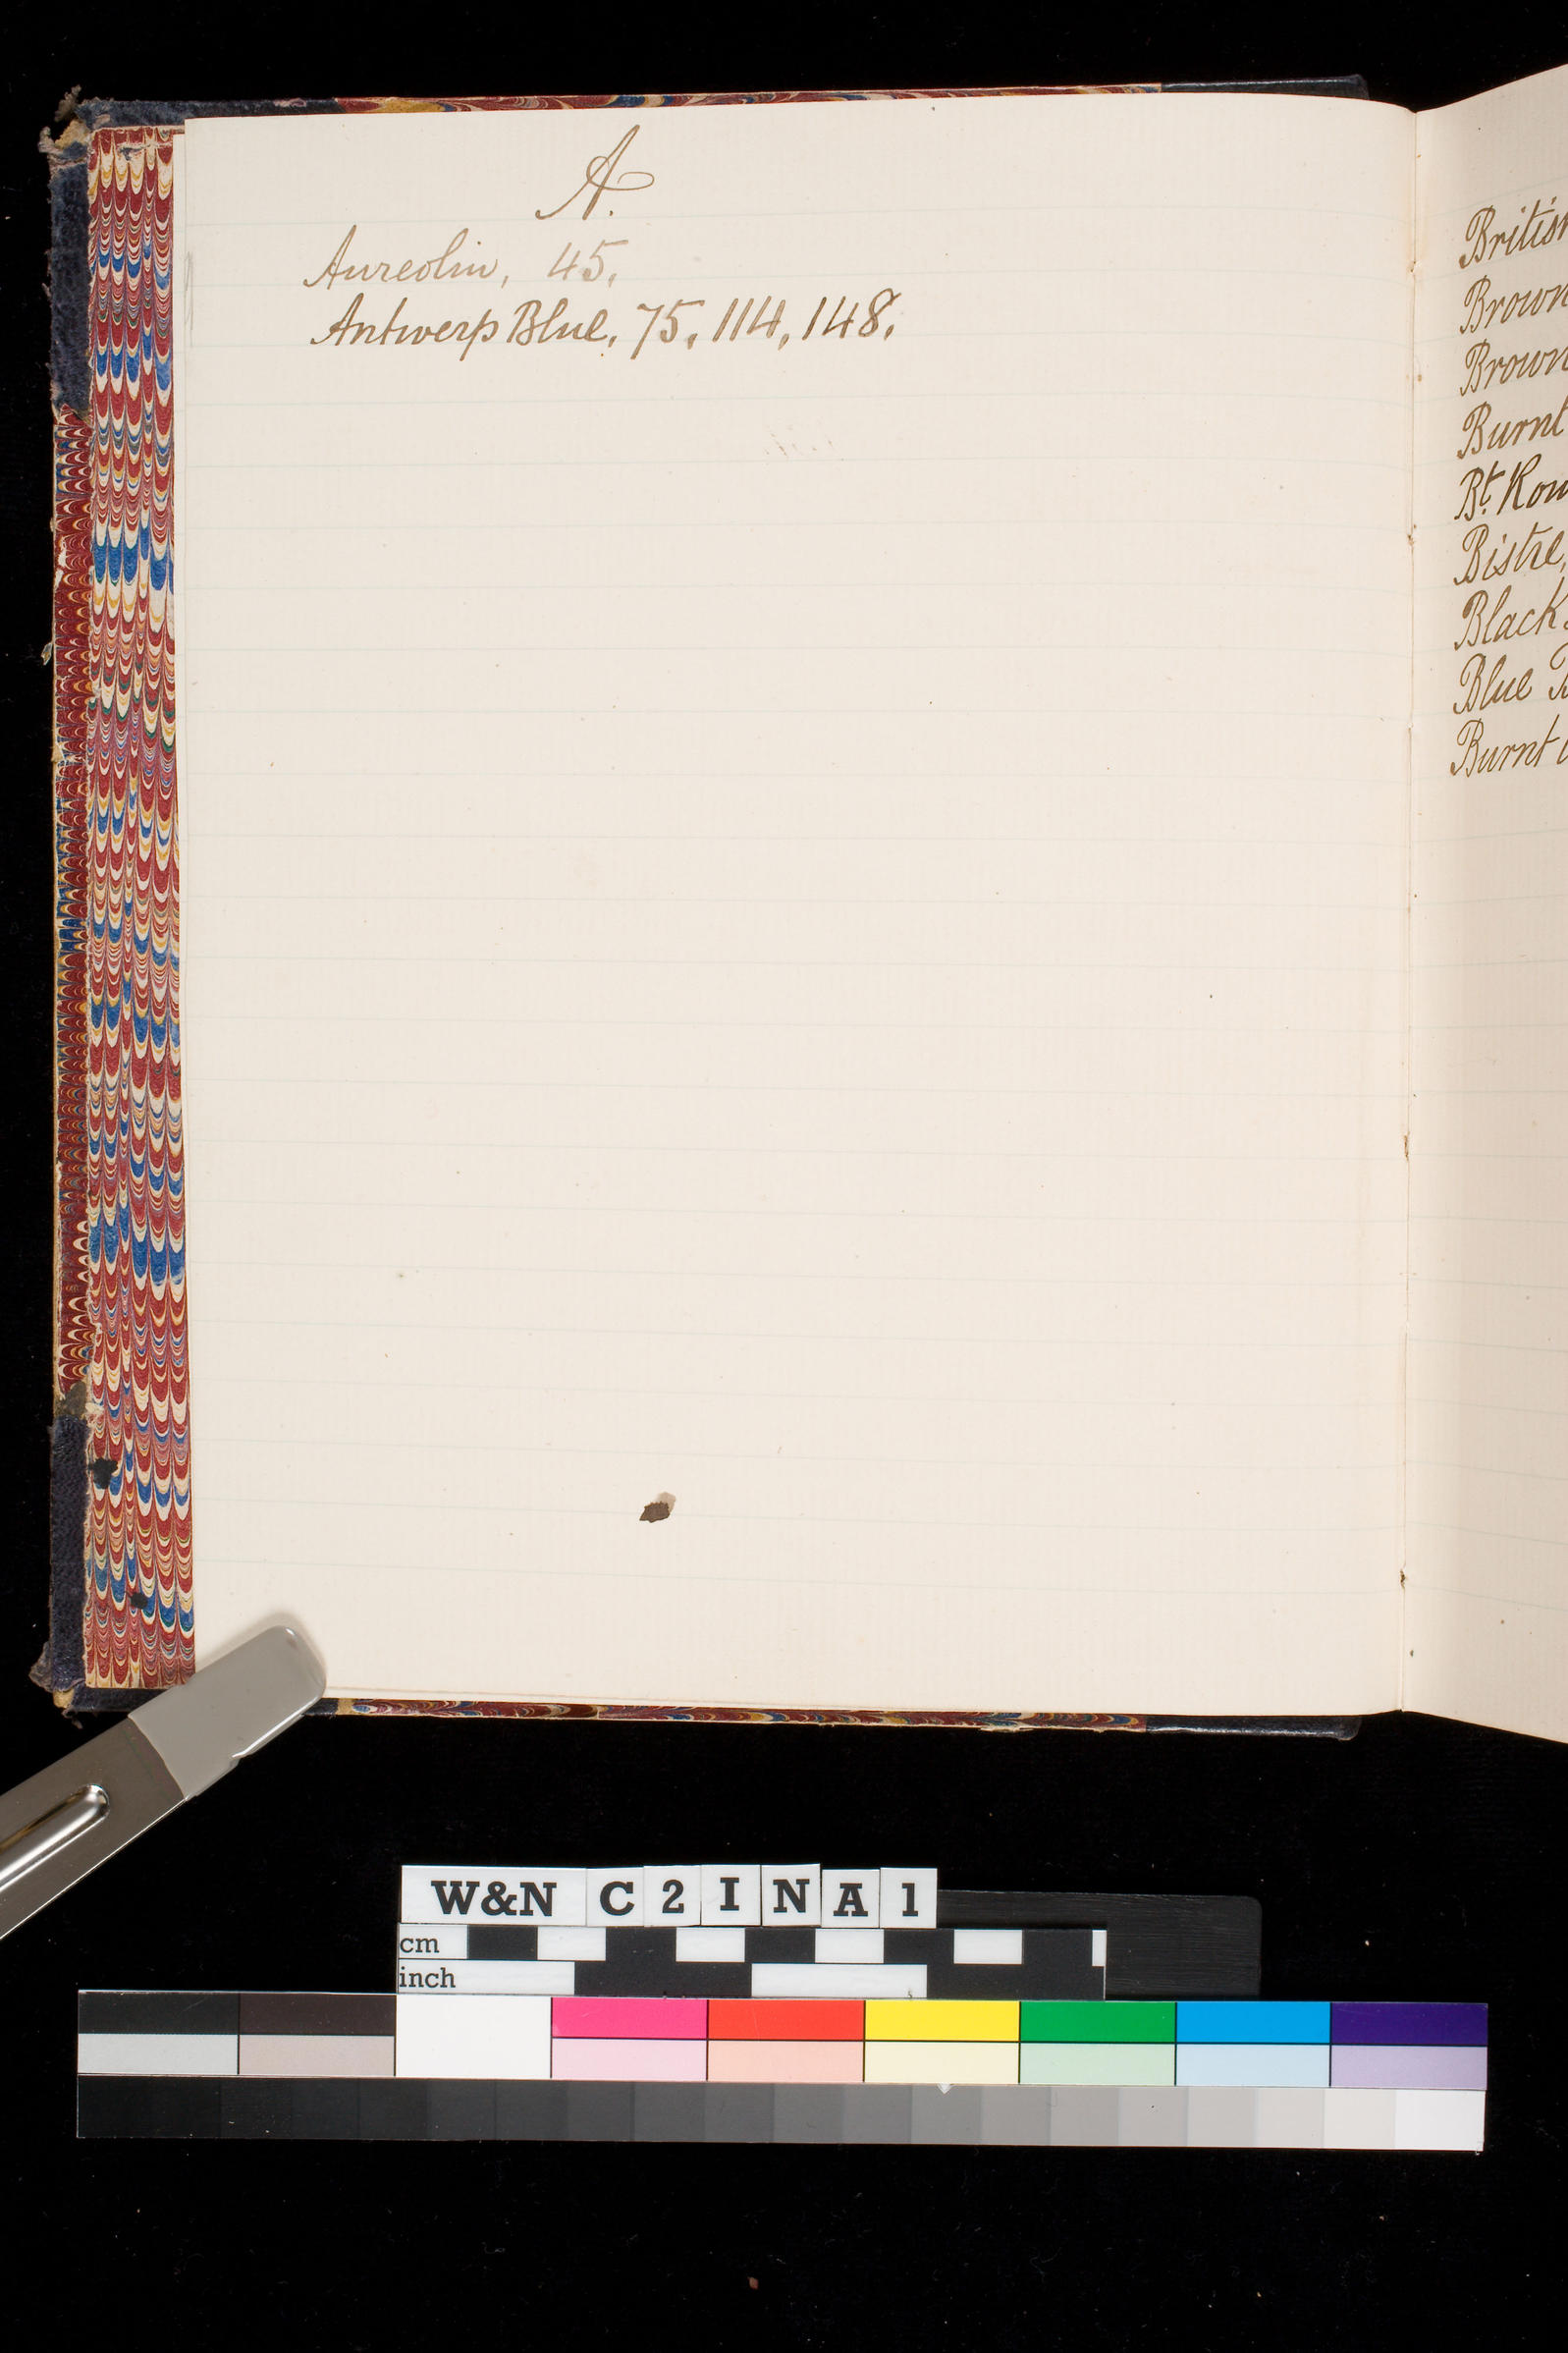 A.
Aureolin, 45.
Antwerp Blue, 75, 114, 148.
Brown
Brown
Burnt
Bt.
Bistre,
Black
Blue
Burnt
W&N C 2 I N A 1
cm
inch